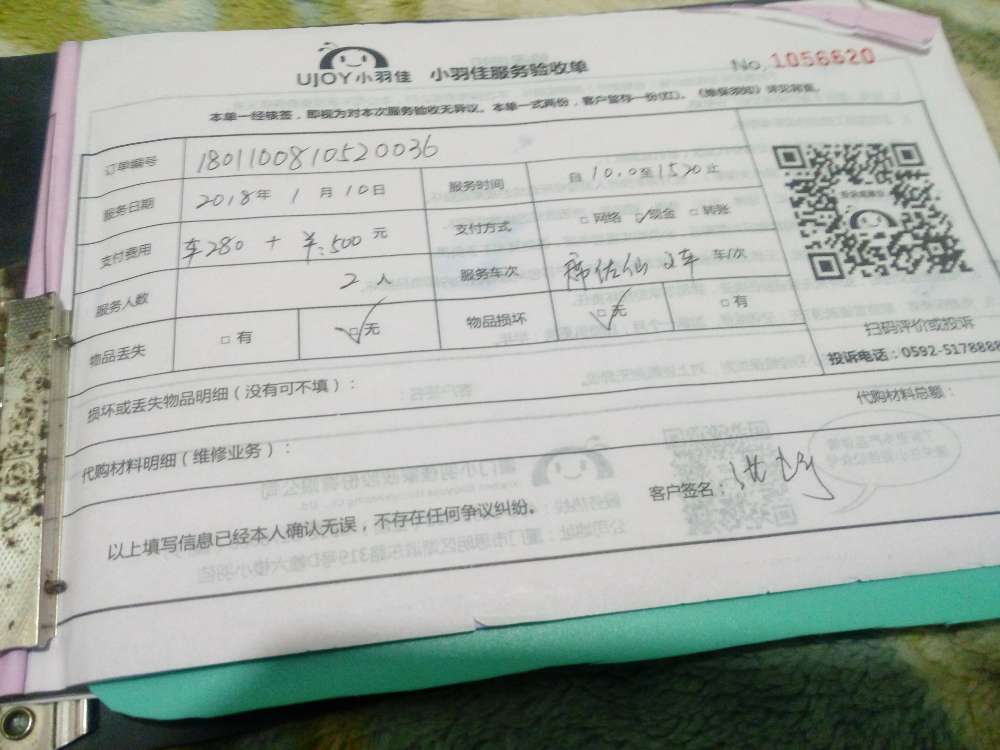 UJOY小羽佳 小羽佳服务验收单 No.1056620
本单一经核签，即视为对本次服务验收无异议。本单一式两份，客户留存一份(红)。《维保须知》详见背面。
订单编号 1801100810520036
服务日期 2018年1月10日 服务时间 自10.0至1520止
支付费用 车280 + ¥:500元 支付方式 □网络 ☑现金 □转账
服务人数 2人 服务车次 2车 车/次
物品丢失 □有 ☑无 物品损坏 ☑无 □有
扫码评价或投诉
投诉电话：0592-5178888
损坏或丢失物品明细（没有可不填）：
代购材料明细（维修业务）： 代购材料总额：
客户签名：
以上填写信息已经本人确认无误，不存在任何争议纠纷。